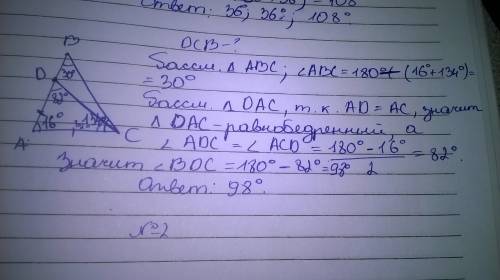 Ответ: 36°, 36°, 108°
DCB-?
B
D
30°
82°
16°
134°
A
C
Рассм. △ ABC; ∠ABC = 180° - (16°+134°)=
= 30°
Рассм. △ DAC, т.к. AD = AC, значит
△ DAC - равнобедренный, а
∠ ADC = ∠ ACD = 180° - 16° / 2 = 82°.
Значит ∠ BDC = 180° - 82° = 98°
Ответ: 98°.
№2